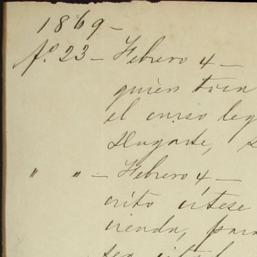 1869 -
fo. 23 - Febrero 4 -
quien tien
el curso leg
Dugarte, s
" " - Febrero 4 -
crito cítese
vienda, para